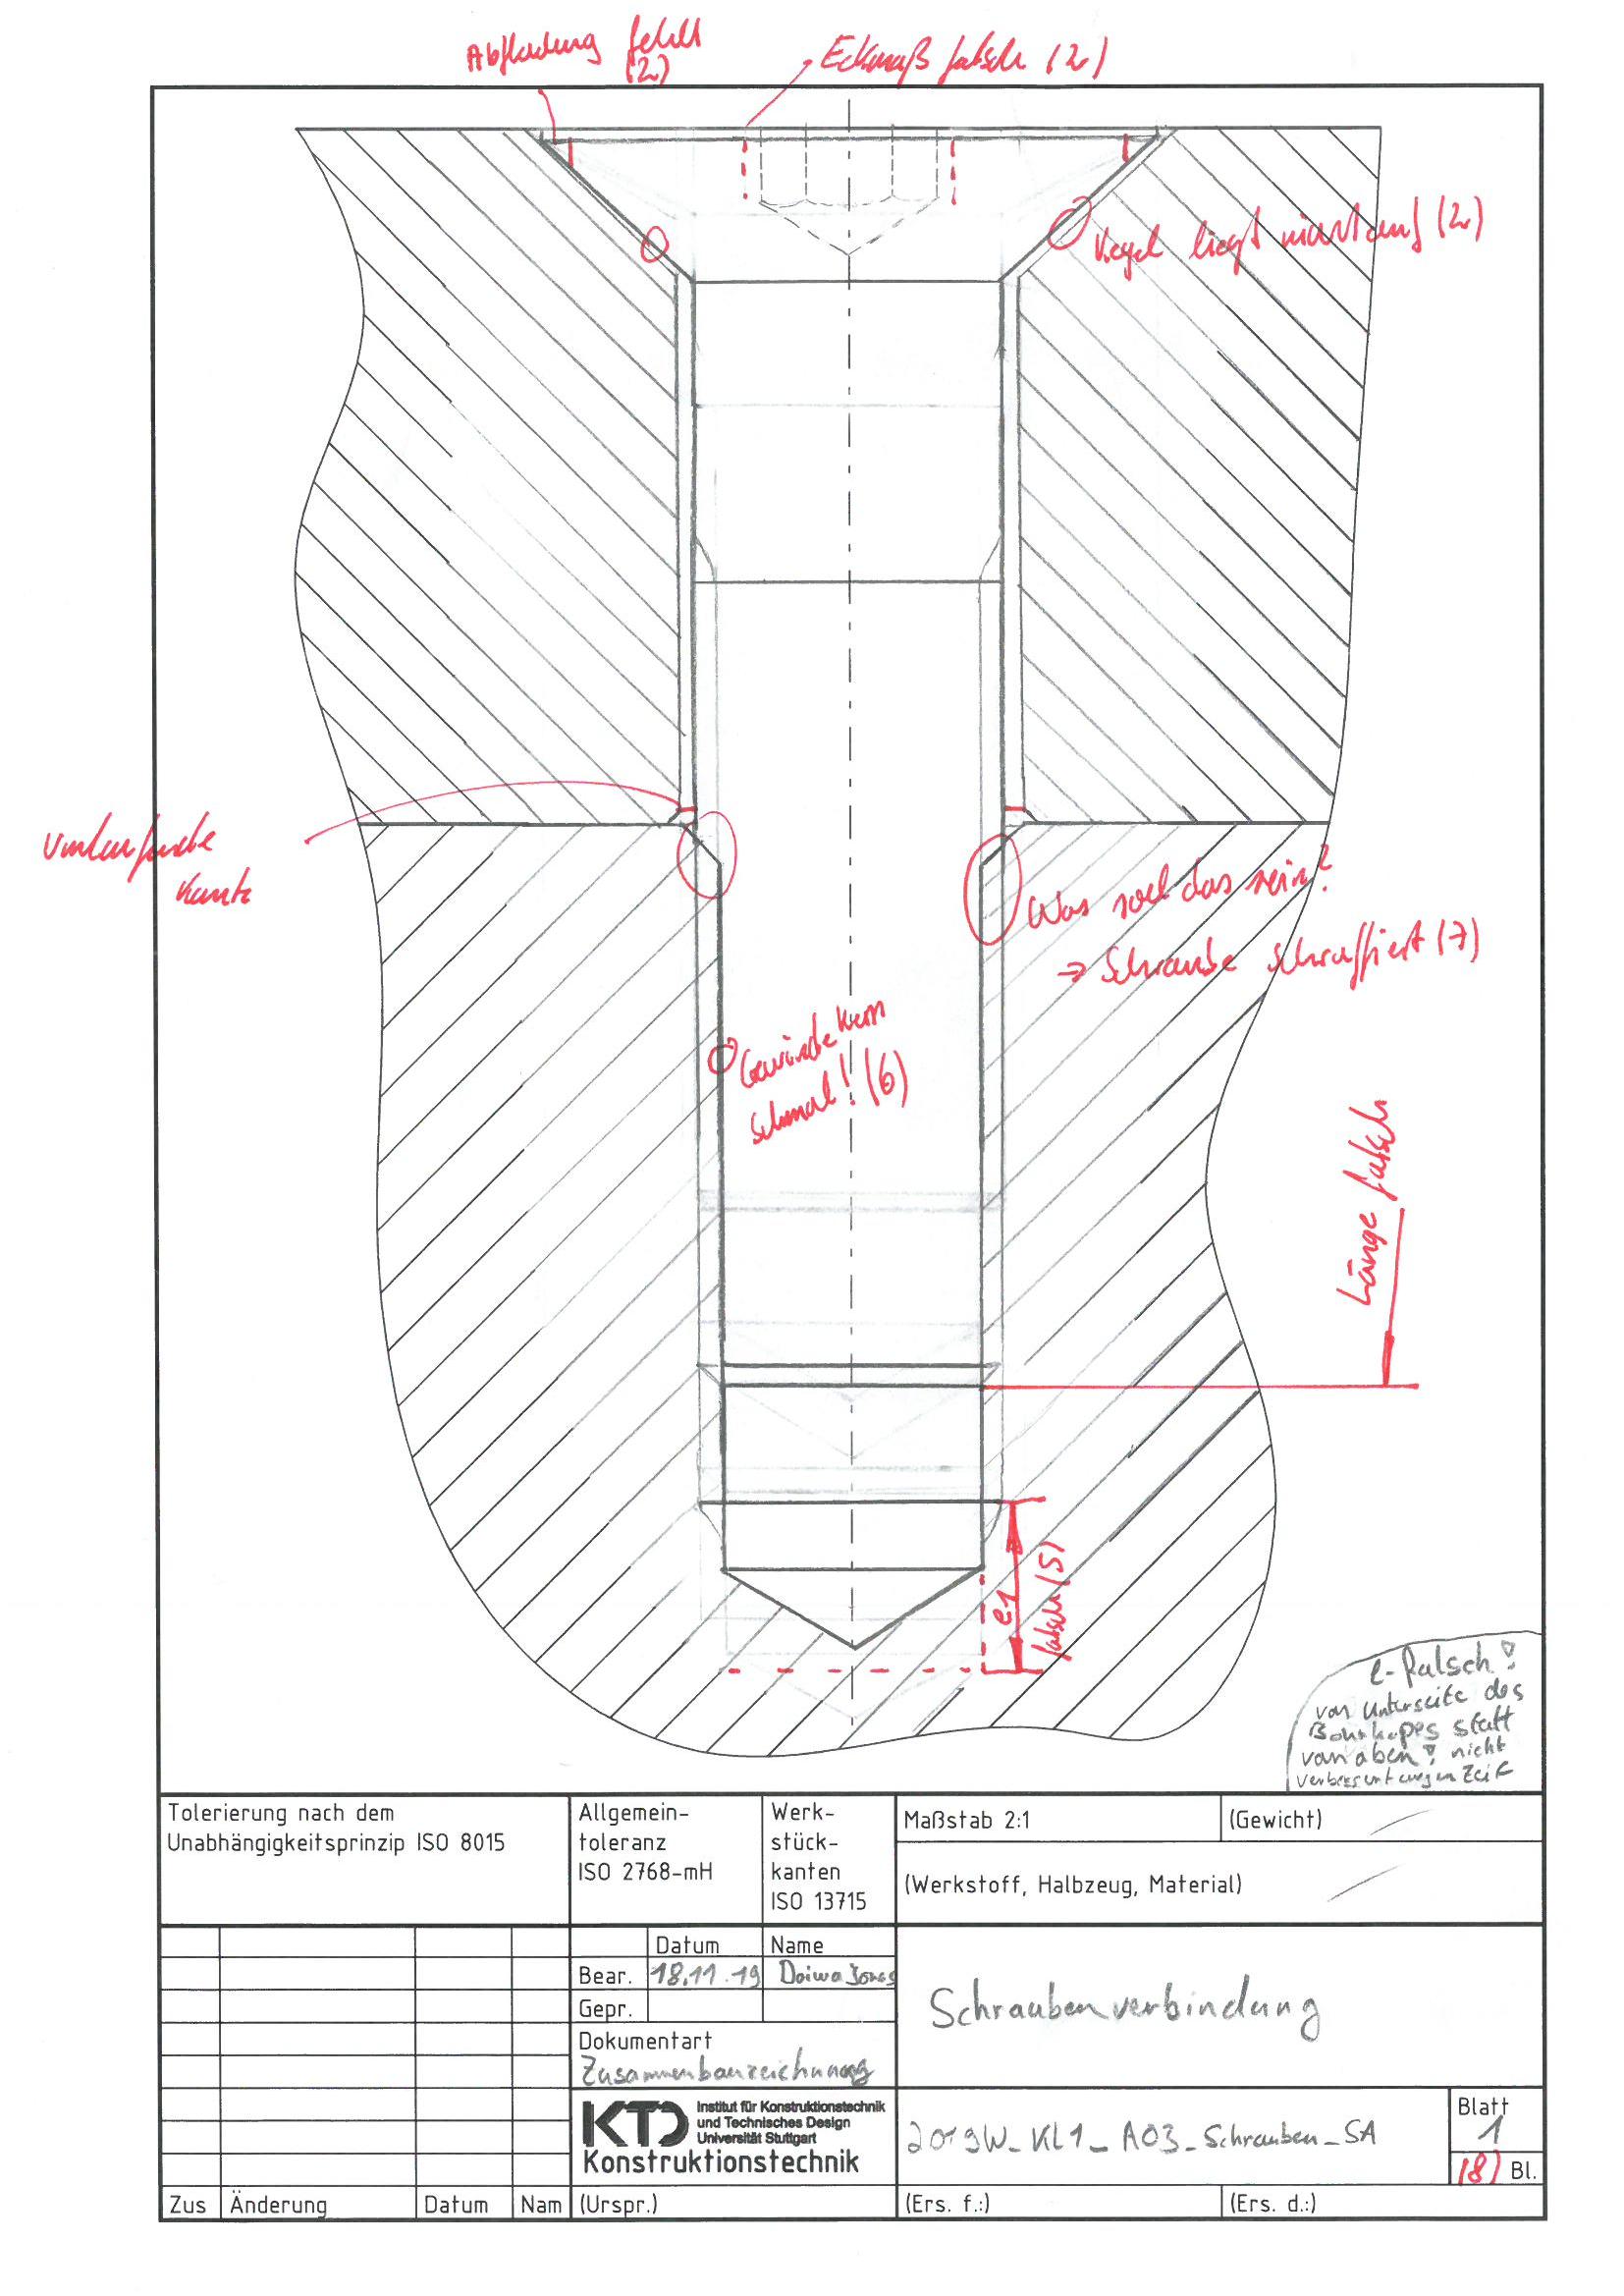 Abflachung fehlt
(2)
Eckmaß falsch (2)
Kegel liegt nicht auf (2)
Umlaufende
Kante
Was soll das sein?
→ Schraube schraffiert (7)
Gewinde Kern
schmal! (6)
Länge falsch
e1
falsch (5)
l-falsch!
von Unterseite des
statt
von oben! nicht
verbessert wegen Zeit
Tolerierung nach dem
Unabhängigkeitsprinzip ISO 8015
Allgemein-
toleranz
ISO 2768-mH
Werk-
stück-
kanten
ISO 13715
Maßstab 2:1
(Gewicht)
(Werkstoff, Halbzeug, Material)
Datum Name
Bear. 18.11.19
Gepr.
Dokumentart
Zusammenbauzeichnung
Schraubenverbindung
KTD
Institut für Konstruktionstechnik
und Technisches Design
Universität Stuttgart
Konstruktionstechnik
2019W_KL1_A03_Schrauben_SA
Blatt
1
(8) Bl.
Zus Änderung Datum Nam (Urspr.) (Ers. f.:) (Ers. d.:)